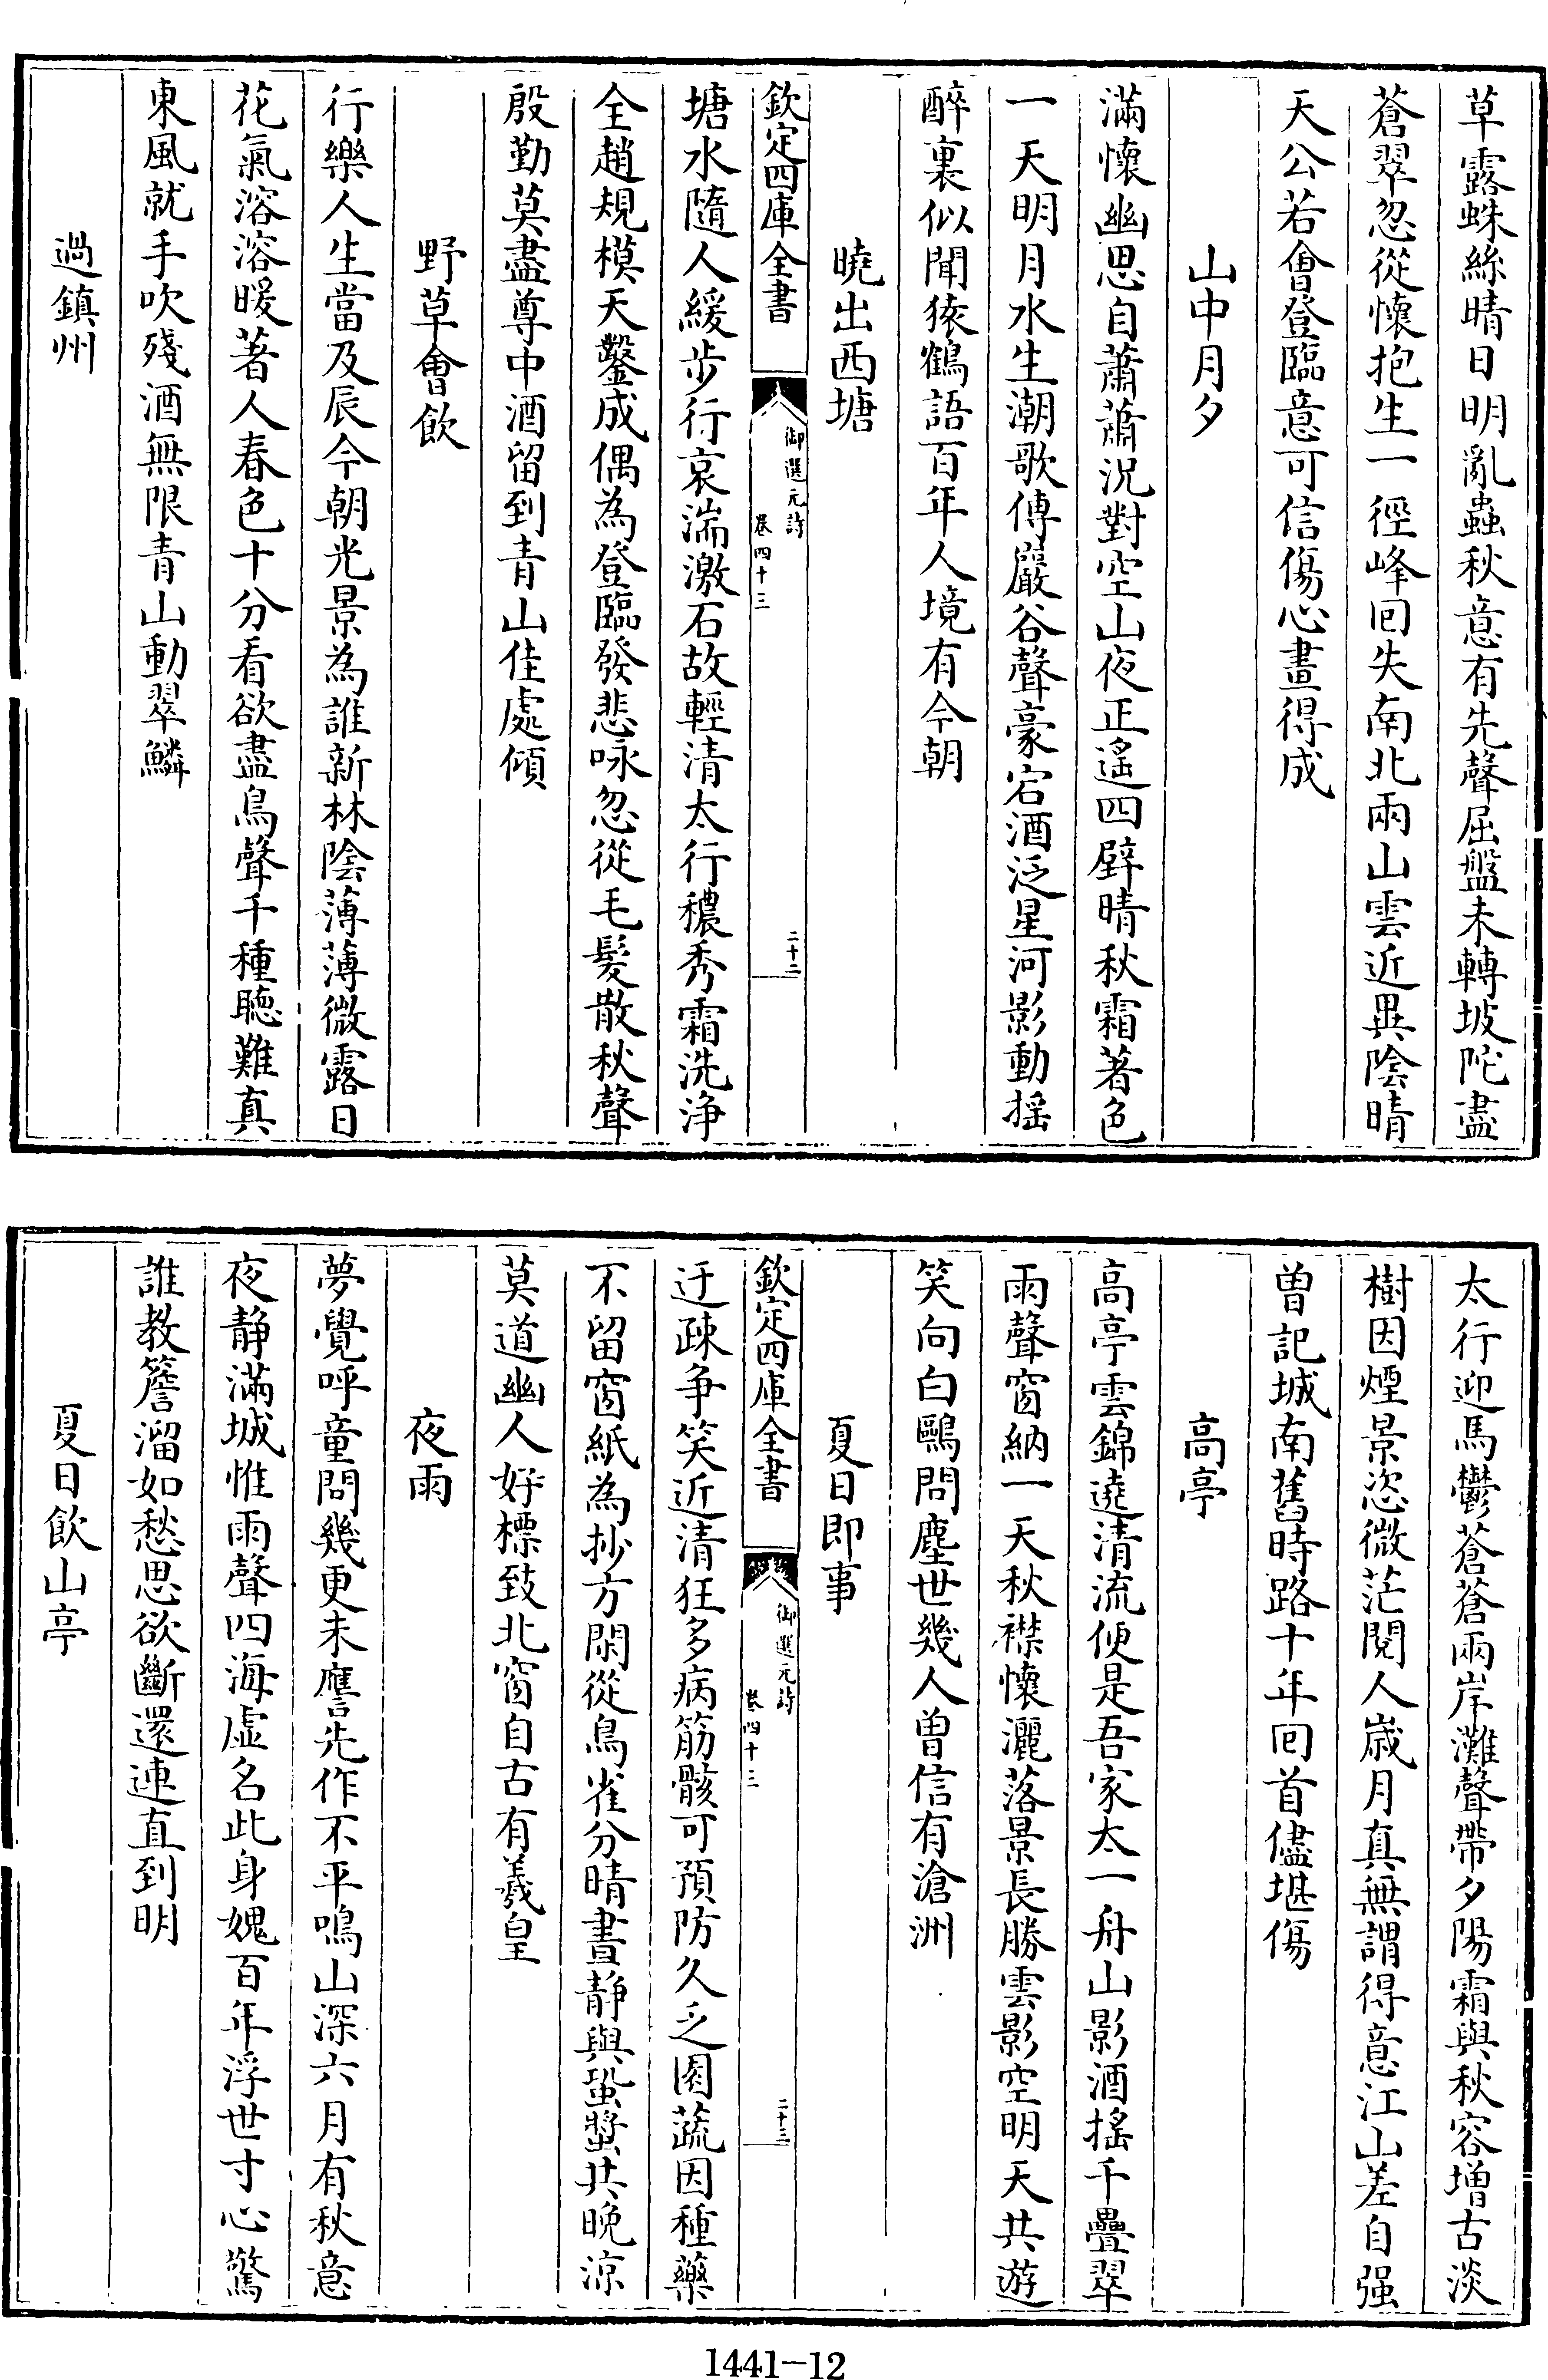 草露蛛絲晴日明亂蟲秋意有先聲屈盤未轉坡陀盡
蒼翠忽從懷抱生一徑峰回失南北兩山雲近異陰晴
天公若會登臨意可信傷心畫得成
山中月夕
滿懷幽思自蕭蕭況對空山夜正遙四壁晴秋霜著色
一天明月水生潮歌傳巖谷聲豪宕酒泛星河影動搖
醉裏似聞猿鶴語百年人境有今朝
曉出西塘
欽定四庫全書
御選元詩
卷四十三
二十二
塘水隨人緩步行哀湍激石故輕清太行穠秀霜洗浄
全趙規模天鑿成偶為登臨發悲咏忽從毛髮散秋聲
殷勤莫盡尊中酒留到青山佳處傾
野草會飲
行樂人生當及辰今朝光景為誰新林陰薄薄微露日
花氣溶溶暖著人春色十分看欲盡鳥聲千種聽難真
東風就手吹殘酒無限青山動翠鱗
過鎮州
太行迎馬鬱蒼蒼兩岸灘聲帶夕陽霜與秋容增古淡
樹因煙景恣微茫閱人歲月真無謂得意江山差自强
曾記城南舊時路十年回首儘堪傷
高亭
高亭雲錦遶清流便是吾家太一舟山影酒搖千疊翠
雨聲窗納一天秋襟懷灑落景長勝雲影空明天共遊
笑向白鷗問塵世幾人曾信有滄洲
夏日即事
欽定四庫全書
御選元詩
卷四十三
二十三
迂疎争笑近清狂多病筋骸可預防久乏園蔬因種藥
不留窗紙為抄方閑從鳥雀分晴晝静與蛩螿共晚涼
莫道幽人好標致北窗自古有羲皇
夜雨
夢覺呼童問幾更未譍先作不平鳴山深六月有秋意
夜静滿城惟雨聲四海虛名此身媿百年浮世寸心驚
誰教簷溜如愁思欲斷還連直到明
夏日飲山亭
1441-12